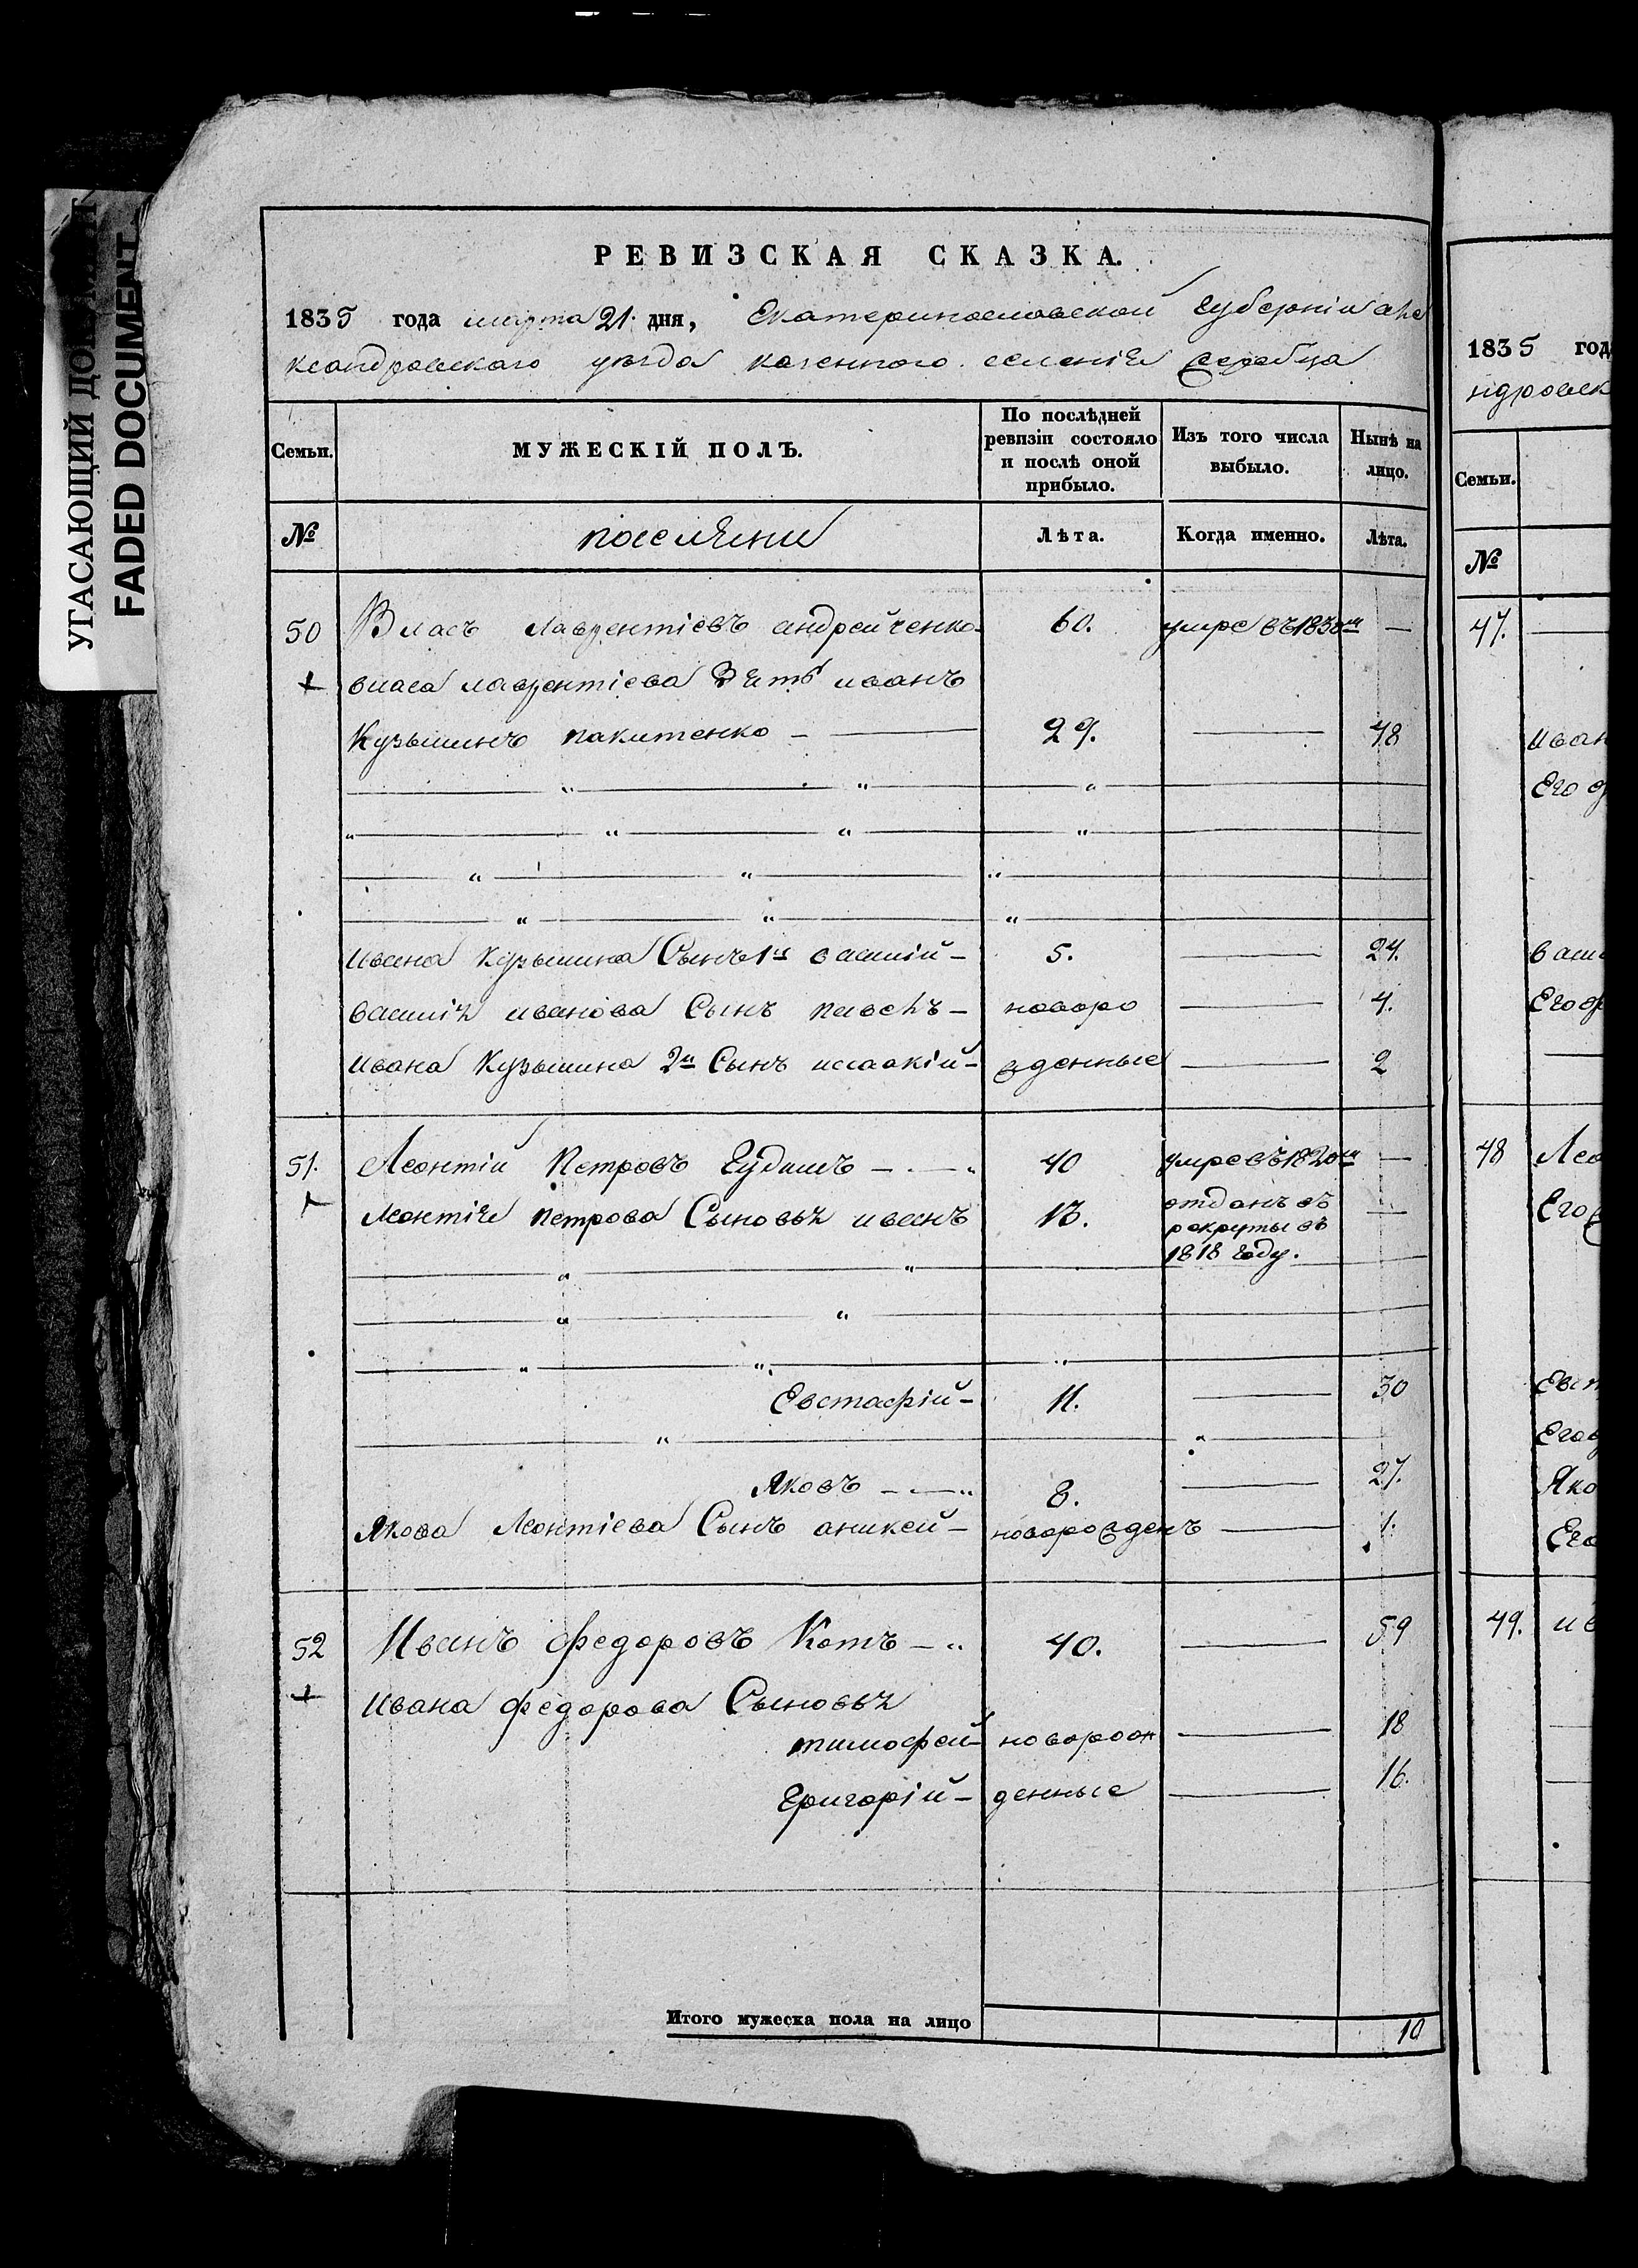 УГАСАЮЩИЙ
FADED DOCUMENT
РЕВИЗСКАЯ СКАЗКА.
1835 года марта 21. дня, Екатеринославской губерніи але
ксандровскаго уѣзда казенного селенія Жеребца
Семьи.
МУЖЕСКІЙ ПОЛЪ.
По послѣдней ревизіи состояло и послѣ оной прибыло.
Изъ того числа выбыло.
Нынѣ на лицо.
№ поселяни Лѣта. Когда именно. Лѣта.
50 Власъ Лаврентіевъ андрейченко - 60. умре въ 1830м —
власа лаврентіева зять иванъ
Кузьминъ никитенко - 29. — 48
ивана Кузьмина Сынъ 1й василій - 5. — 24.
василія иванова Сынъ павелъ - новоро — 4.
ивана Кузьмина 2й Сынъ иссаакій - жденные — 2
51. Леонтій Петровъ Гудимъ - 40 умре въ 1820м —
Леонтія петрова Сыновья иванъ 13. отданъ въ рекруты въ 1818 году. —
Евстафій - 11. — 30
Яковъ - 8. — 27.
Якова Леонтіева Сынъ аникей - новорожденъ — 1.
52 Иванъ федоровъ Котъ - 40. — 59
Ивана федорова Сыновья
тимофей - новорож — 18
Григорій - денные — 16.
Итого мужеска пола на лицо 10
1835 год
ндровск
Семьи.
№
47.
иван
Его
васи
Его
48 Лео
Его
Евст
Его
Яко
Его
49. ив